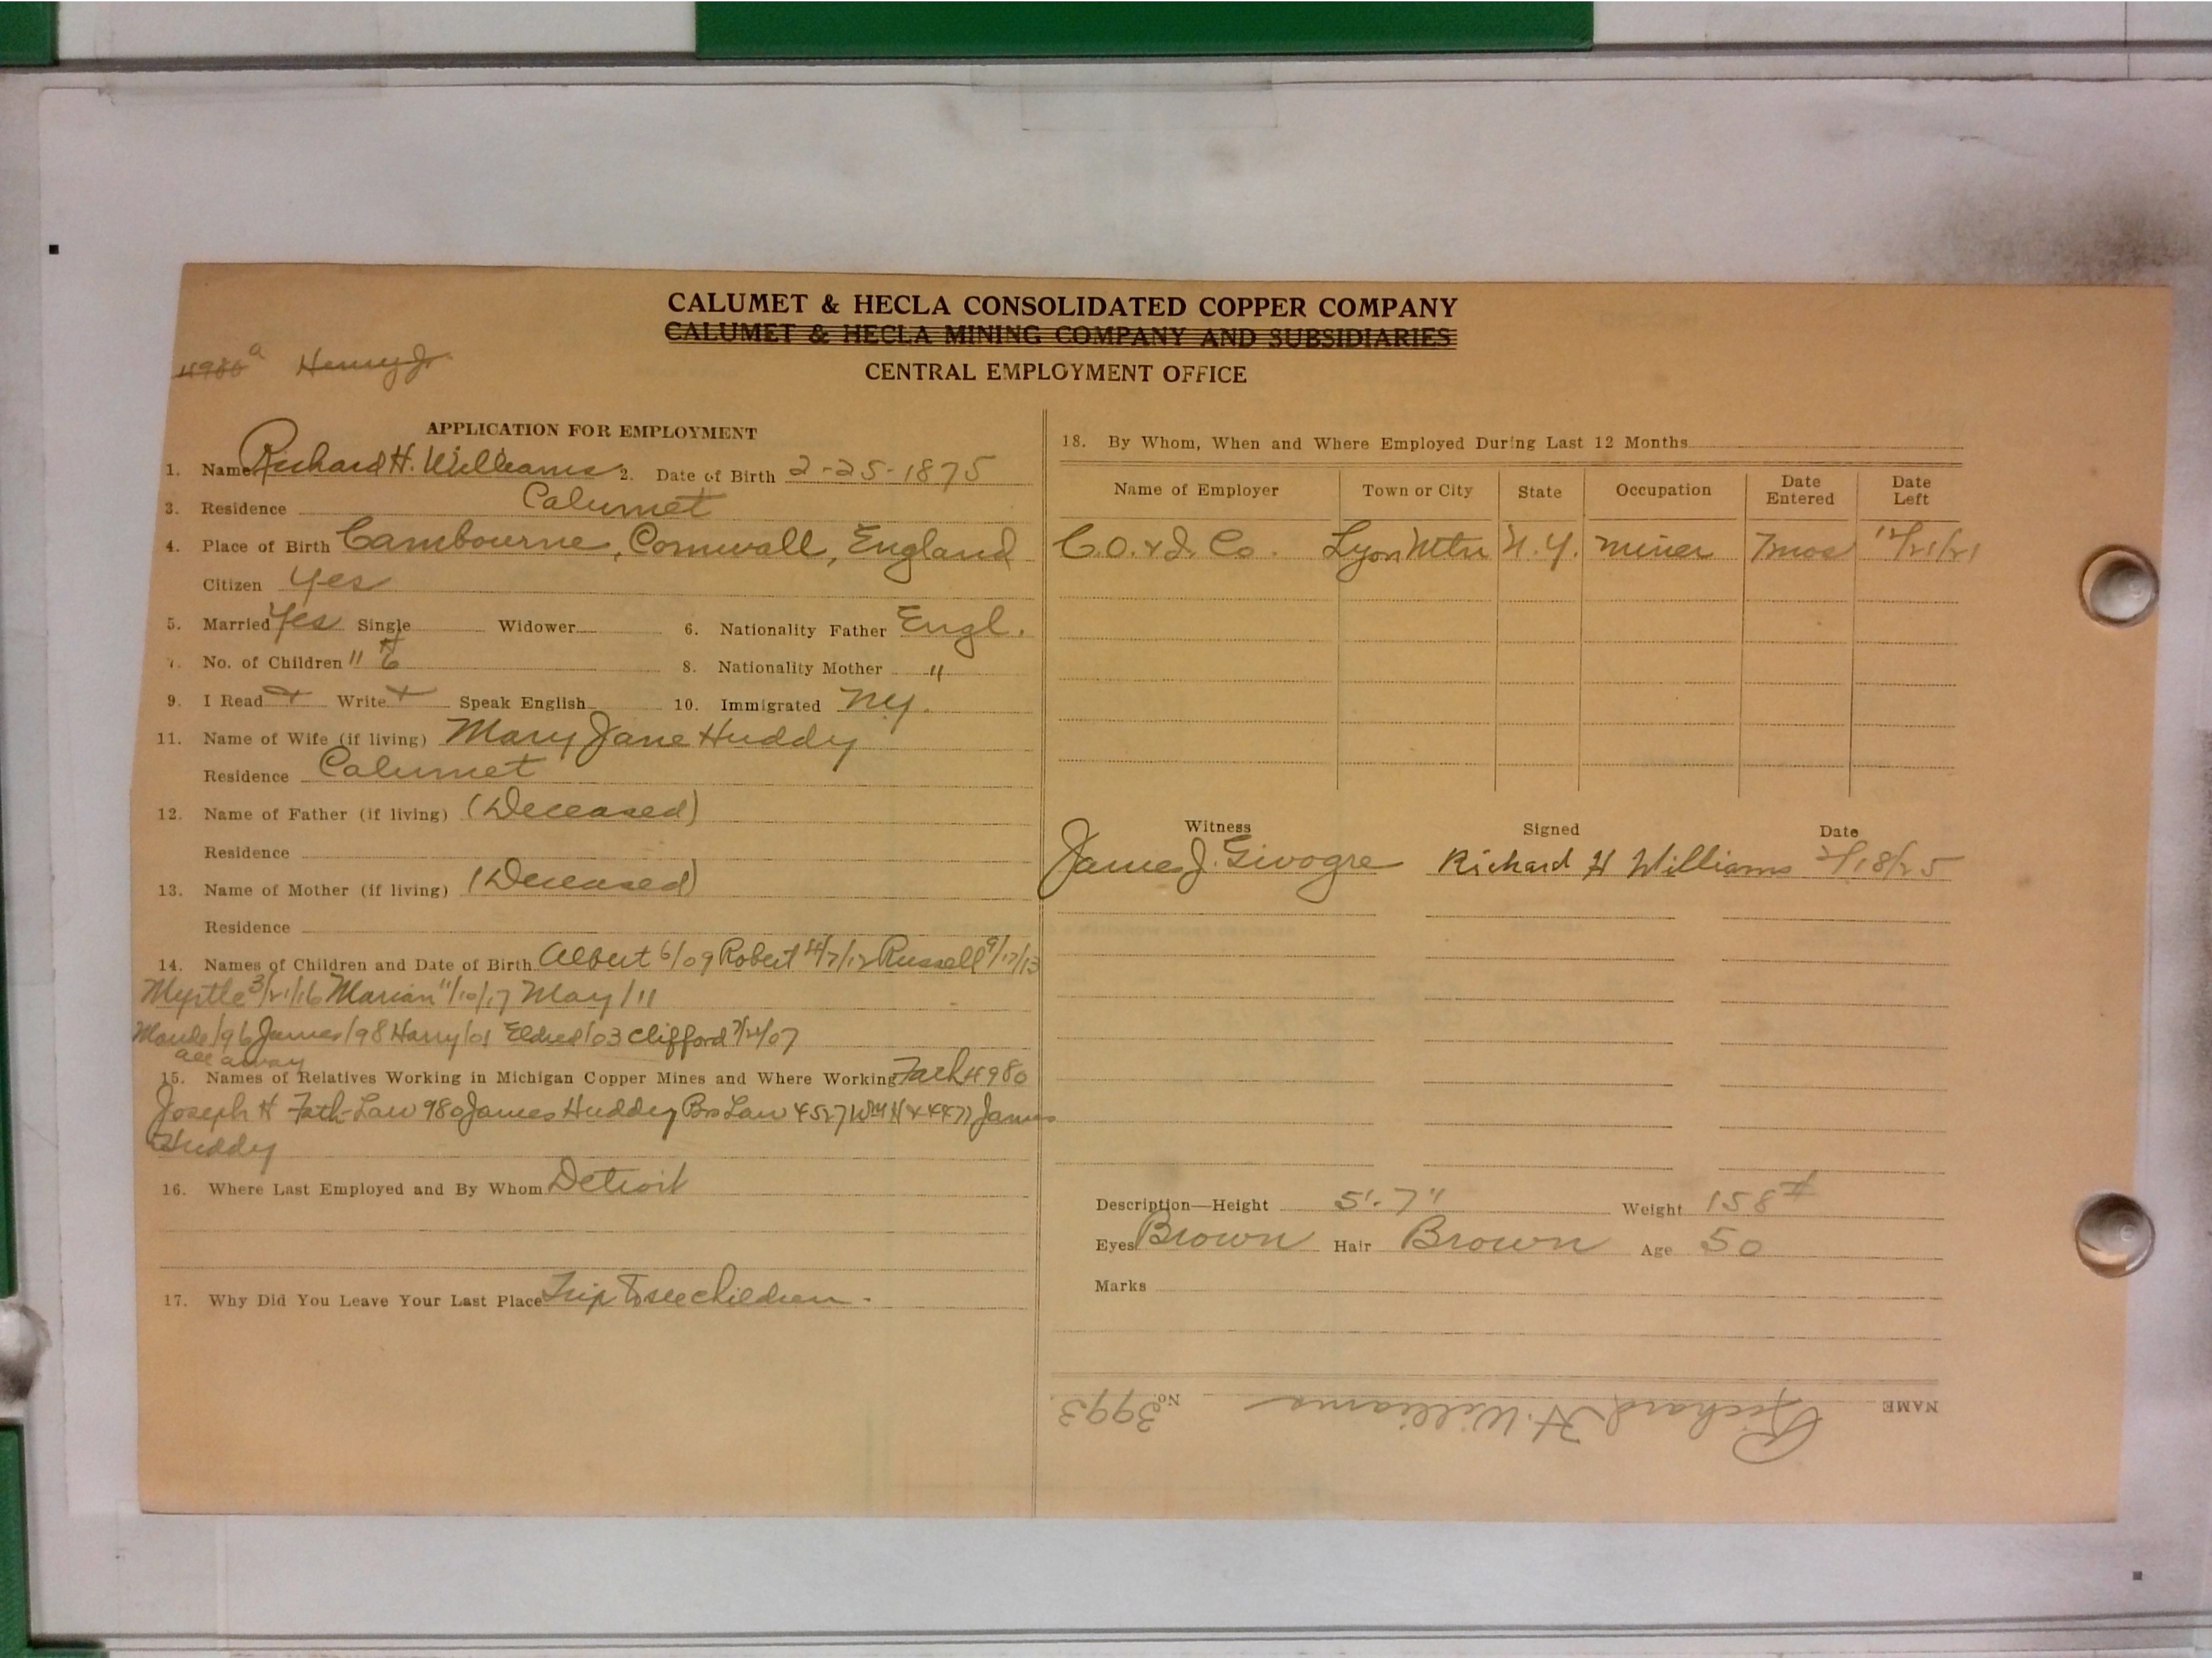 CALUMET & HECLA CONSOLIDATED COPPER COMPANY
CALUMET & HECLA MINING COMPANY AND SUBSIDIARIES
4980 a Henry Jr
CENTRAL EMPLOYMENT OFFICE
APPLICATION FOR EMPLOYMENT
1. Name Richard H. Williams 2. Date of Birth 2-25-1875
3. Residence Calumet
4. Place of Birth Cambourne, Cornwall, England
Citizen Yes
5. Married Yes Single Widower 6. Nationality Father Engl.
7. No. of Children 11 6 8. Nationality Mother "
9. I Read + Write + Speak English 10. Immigrated NY.
11. Name of Wife (if living) Mary Jane Huddy
Residence Calumet
12. Name of Father (if living) (Deceased)
Residence
13. Name of Mother (if living) (Deceased)
Residence
14. Names of Children and Date of Birth Albert 6/09 Robert 4/7/12 Russell 9/17/13
Myrtle 3/21/16 Marian 11/10/17 May /11
Maude /96 James /98 Harry /01 Eldred /03 Clifford 7/24/07
all away
15. Names of Relatives Working in Michigan Copper Mines and Where Working Fath 4980
Joseph H Fath-Law 980 James Huddy Bro Law 4527 Wm H 4447 James
Huddy
16. Where Last Employed and By Whom Detroit
17. Why Did You Leave Your Last Place Trip To see children.
18. By Whom, When and Where Employed During Last 12 Months
Name of Employer Town or City State Occupation Date Entered Date Left
C.O. & I. Co. Lyon Mtn N.Y. miner 7mos 12/21/21
Witness Signed Date
James J. Givogre Richard H Williams 2/18/25
Description—Height 5'.7" Weight 158#
Eyes Brown Hair Brown Age 50
Marks
NAME Richard H. Williams No. 3993